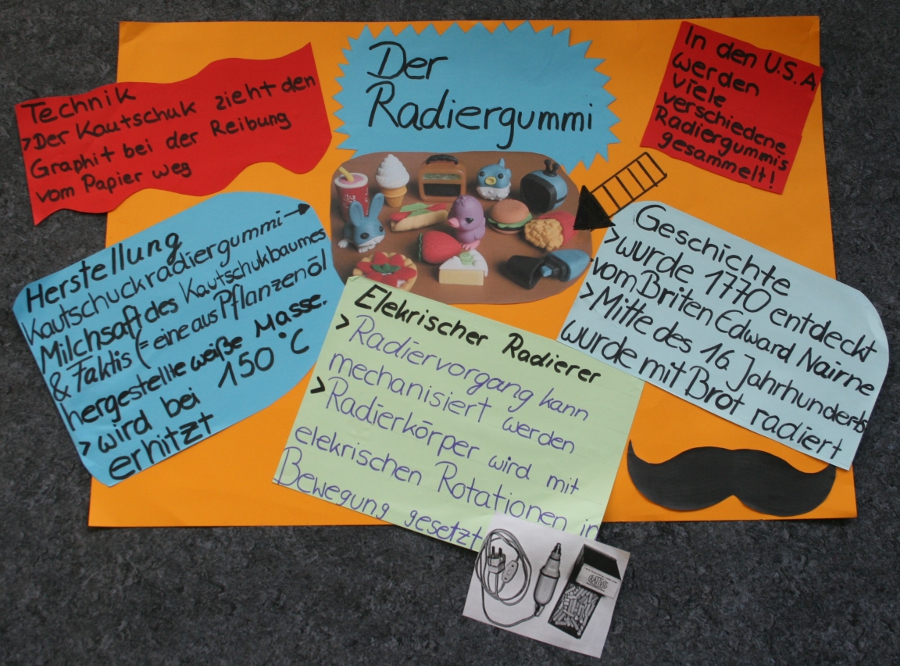 Der
Radiergummi
Technik
>Der Kautschuk zieht den
Graphit bei der Reibung
vom Papier weg
In den U.S.A
werden
viele
verschiedene
Radiergummis
gesammelt!
Herstellung
Kautschuckradiergummi→
Milchsaft des Kautschukbaumes
& Faktis (= eine aus Pflanzenöl
hergestelle weiße Masse.
> wird bei 150°C
erhitzt
Elekrischer Radierer
> Radiervorgang kann
mechanisiert werden
> Radierkörper wird mit
elekrischen Rotationen in
Bewegung gesetzt
Geschichte
>wurde 1770 entdeckt
vom Briten Edward Nairne
>Mitte des 16. Jahrhunderts
wurde mit Brot radiert